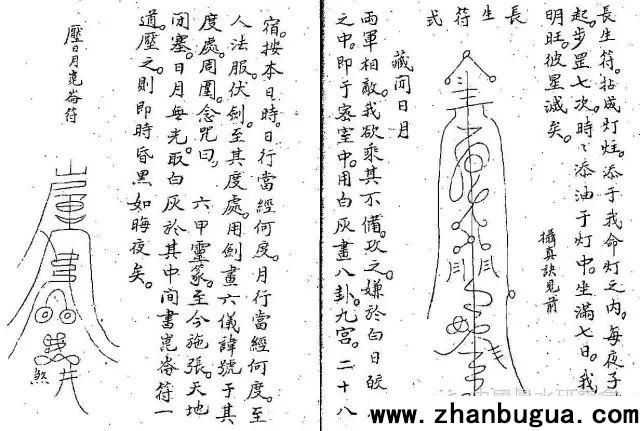 長生符。拈成灯炷。添于我命灯之内。每夜子
起步罡七次。時々添油于灯中。坐滿七日。我
明旺。彼星滅矣。
攝真訣見前
長生符式
藏闭日月
兩軍相敵。我欲乘其不備。攻之。嫌於白日皎
之中。即于密室中。用白灰畫八卦。九宮。二十八
宿。按本日時。日行當經何度。月行當經何度。至
人法服。伏劍。至其度處。用劍畫六儀諱號于其
度處。周圍。念咒曰。六甲靈篆。至今施張。天地
闭塞。日月無光。取白灰於其中間書崑崙符一
道。壓之。則即時昏黑如晦夜矣。
壓日月崑崙符
煞
www.zhanbugua.com